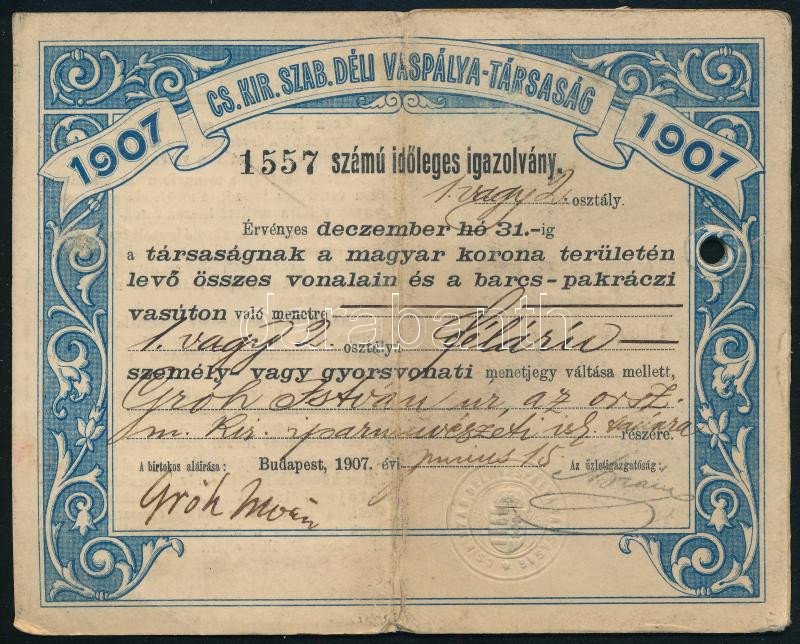 CS. KIR. SZAB. DÉLI VASPÁLYA-TÁRSASÁG
1907 1907
1557 számú időleges igazolvány.
1. vagy 2. osztály.
Érvényes deczember hó 31.-ig
a társaságnak a magyar korona területén
levő összes vonalain és a barcs-pakráczi
vasúton való menetre
1. vagy 2. osztályú féláru
személy- vagy gyorsvonati menetjegy váltása mellett,
Gróh István úr, az orsz.
m. kir. iparművészeti isk. tanára részére.
Budapest, 1907. évi junius 15.
A birtokos aláírása: Az üzletigazgatóság:
Gróh István
darabanth